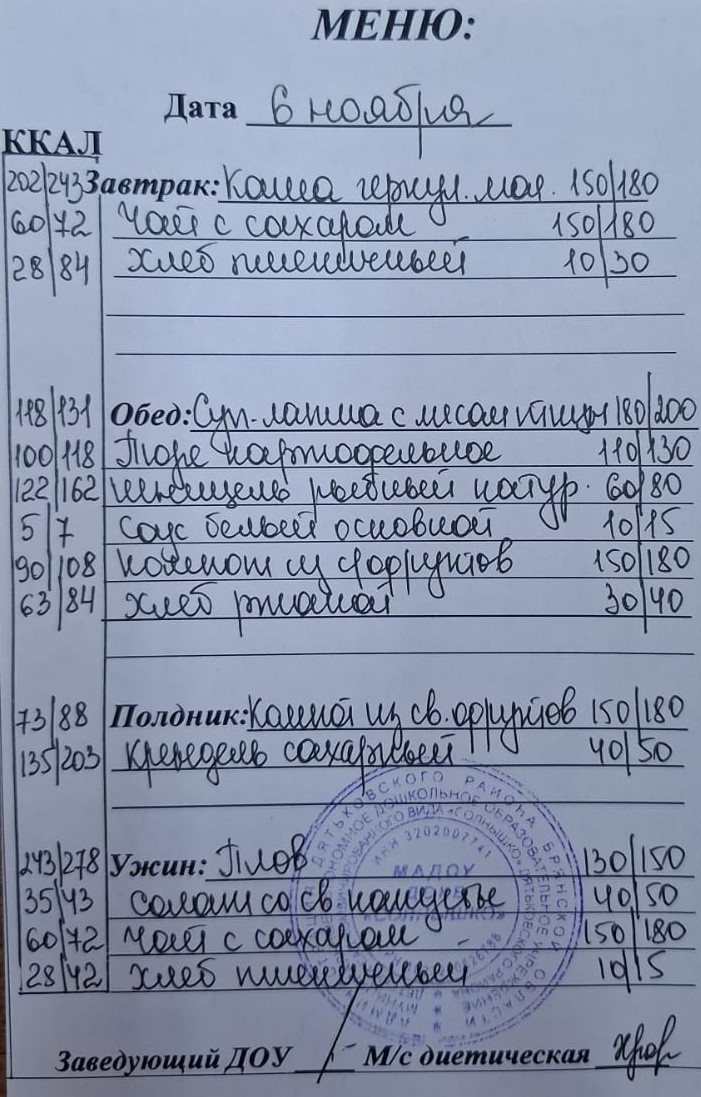 МЕНЮ:
Дата 6 ноября
ККАЛ
202/243 Завтрак: Каша геркул. мол. 150/180
60/72 Чай с сахаром 150/180
28/84 Хлеб пшеничный 10/30
118/131 Обед: Суп-лапша с мясом птицы 180/200
100/118 Пюре картофельное 110/130
122/162 Шницель рыбный натур. 60/80
5/7 Соус белый основной 10/15
90/108 Компот из с/фруктов 150/180
63/84 Хлеб ржаной 30/40
73/88 Полдник: Компот из св. фруктов 150/180
135/203 Крендель сахарный 40/50
243/278 Ужин: Плов 130/150
35/43 салат со св капусты 40/50
60/72 Чай с сахаром - 150/180
28/42 Хлеб пшеничный 10/15
ДЯТЬКОВСКОГО РАЙОНА БРЯНСКОЙ ОБЛАСТИ
ДОШКОЛЬНОЕ ОБРАЗОВАТЕЛЬНОЕ УЧРЕЖДЕНИЕ
ВИДА «СОЛНЫШКО» ДЯТЬКОВСКОГО РАЙОНА
ИНН 3202007741
МАДОУ
«СОЛНЫШКО»
Заведующий ДОУ М/с диетическая